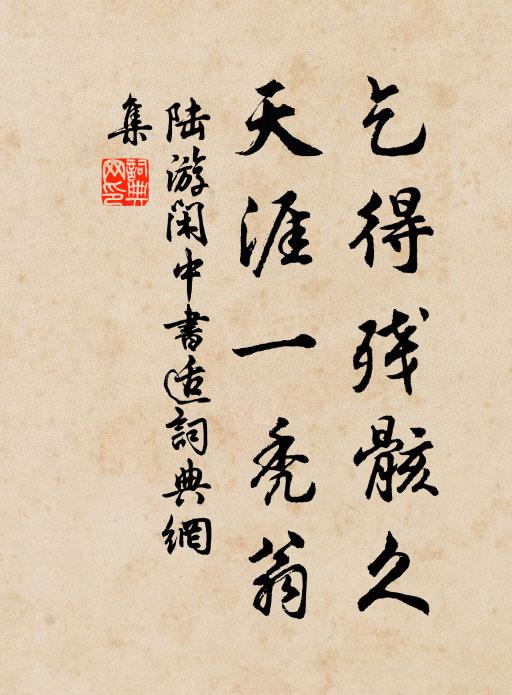 乞得残骸久
天涯一秃翁
陆游闲中书适詞典網
集
詞典網印